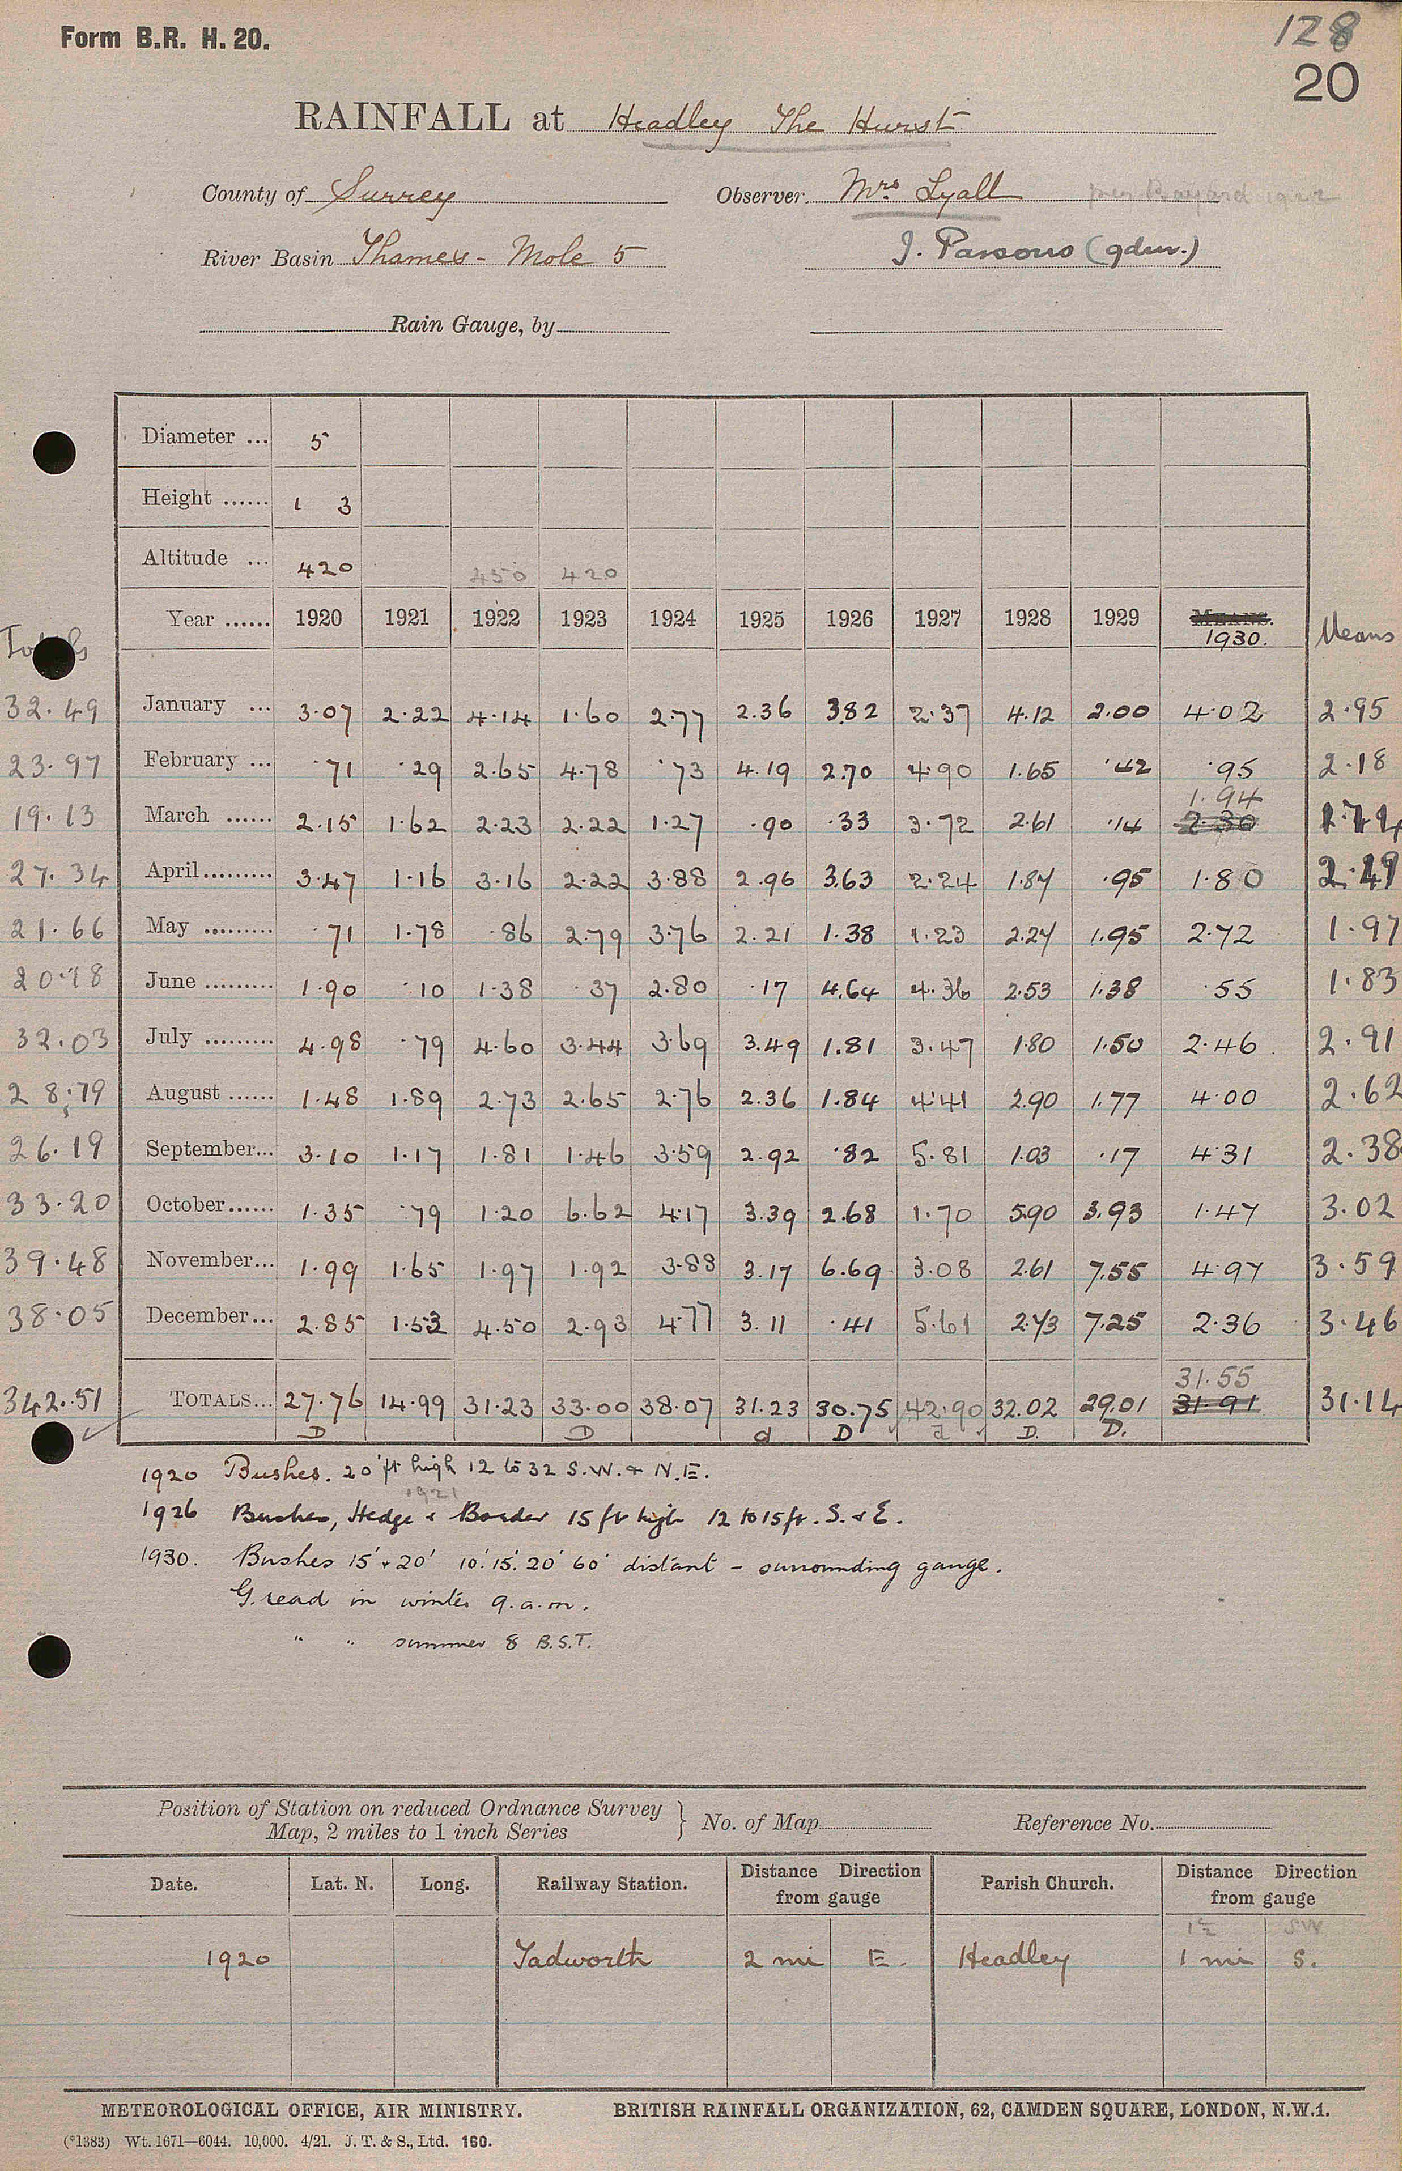 Form B.R. H. 20.
128
20
RAINFALL at Headley The Hurst
County of Surrey Observer Mrs. Lyall per Bayard 1922
River Basin Thames - Mole 5 J. Parsons (gdnr.)
Rain Gauge, by
Diameter ... 5
Height ...... 1 3
Altitude ... 420 450 420
Totals Year ...... 1920 1921 1922 1923 1924 1925 1926 1927 1928 1929 MEANS. 1930. Means
32.49 January ... 3.07 2.22 4.14 1.60 2.77 2.36 3.82 2.37 4.12 2.00 4.02 2.95
23.97 February ... .71 .29 2.65 4.78 .73 4.19 2.70 4.90 1.65 .42 .95 2.18
1.94
19.13 March ...... 2.15 1.62 2.23 2.22 1.27 .90 .33 3.72 2.61 .14 2.30 1.74
27.34 April ......... 3.47 1.16 3.16 2.22 3.88 2.96 3.63 2.24 1.87 .95 1.80 2.49
21.66 May ......... .71 1.78 .86 2.79 3.76 2.21 1.38 1.23 2.27 1.95 2.72 1.97
20.18 June ......... 1.90 .10 1.38 .37 2.80 .17 4.64 4.36 2.53 1.38 .55 1.83
32.03 July ......... 4.98 .79 4.60 3.44 3.69 3.49 1.81 3.47 1.80 1.50 2.46 2.91
28.79 August ...... 1.48 1.89 2.73 2.65 2.76 2.36 1.84 4.41 2.90 1.77 4.00 2.62
26.19 September... 3.10 1.17 1.81 1.46 3.59 2.92 .82 5.81 1.03 .17 4.31 2.38
33.20 October...... 1.35 .79 1.20 6.62 4.17 3.39 2.68 1.70 5.90 3.93 1.47 3.02
39.48 November... 1.99 1.65 1.97 1.92 3.88 3.17 6.69 3.08 2.61 7.55 4.97 3.59
38.05 December... 2.85 1.53 4.50 2.93 4.77 3.11 .41 5.61 2.73 7.25 2.36 3.46
31.55
342.51 TOTALS... 27.76 14.99 31.23 33.00 38.07 31.23 30.75 42.90 32.02 29.01 31.91 31.14
D D d D d D. D.
1920 Bushes. 20 ft high 12 to 32 S.W. & N.E.
1921
1926 Bushes, Hedge & Border 15 ft high 12 to 15 ft. S. & E.
1930. Bushes 15' & 20' 10' 15' 20' 60' distant - surrounding gauge.
G. read in winter 9 a.m.
" " summer 8 B.S.T.
Position of Station on reduced Ordnance Survey
Map, 2 miles to 1 inch Series } No. of Map Reference No.
Date. Lat. N. Long. Railway Station. Distance Direction from gauge Parish Church. Distance Direction from gauge
1½ SW
1920 Tadworth 2 mi E. Headley 1 mi S.
METEOROLOGICAL OFFICE, AIR MINISTRY. BRITISH RAINFALL ORGANIZATION, 62, CAMDEN SQUARE, LONDON, N.W.1.
(*1383) Wt. 1671—6044. 10,000. 4/21. J. T. & S., Ltd. 160.